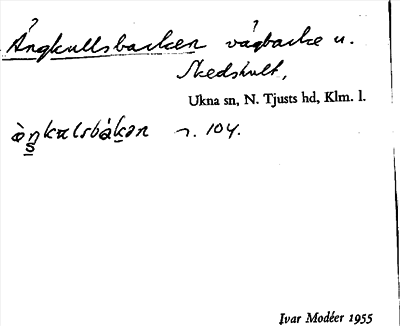 Ängkullsbacken vägbacke u.
Skedshult,
Ukna sn, N. Tjusts hd, Klm. l.
r. 104.
Ivar Modéer 1955